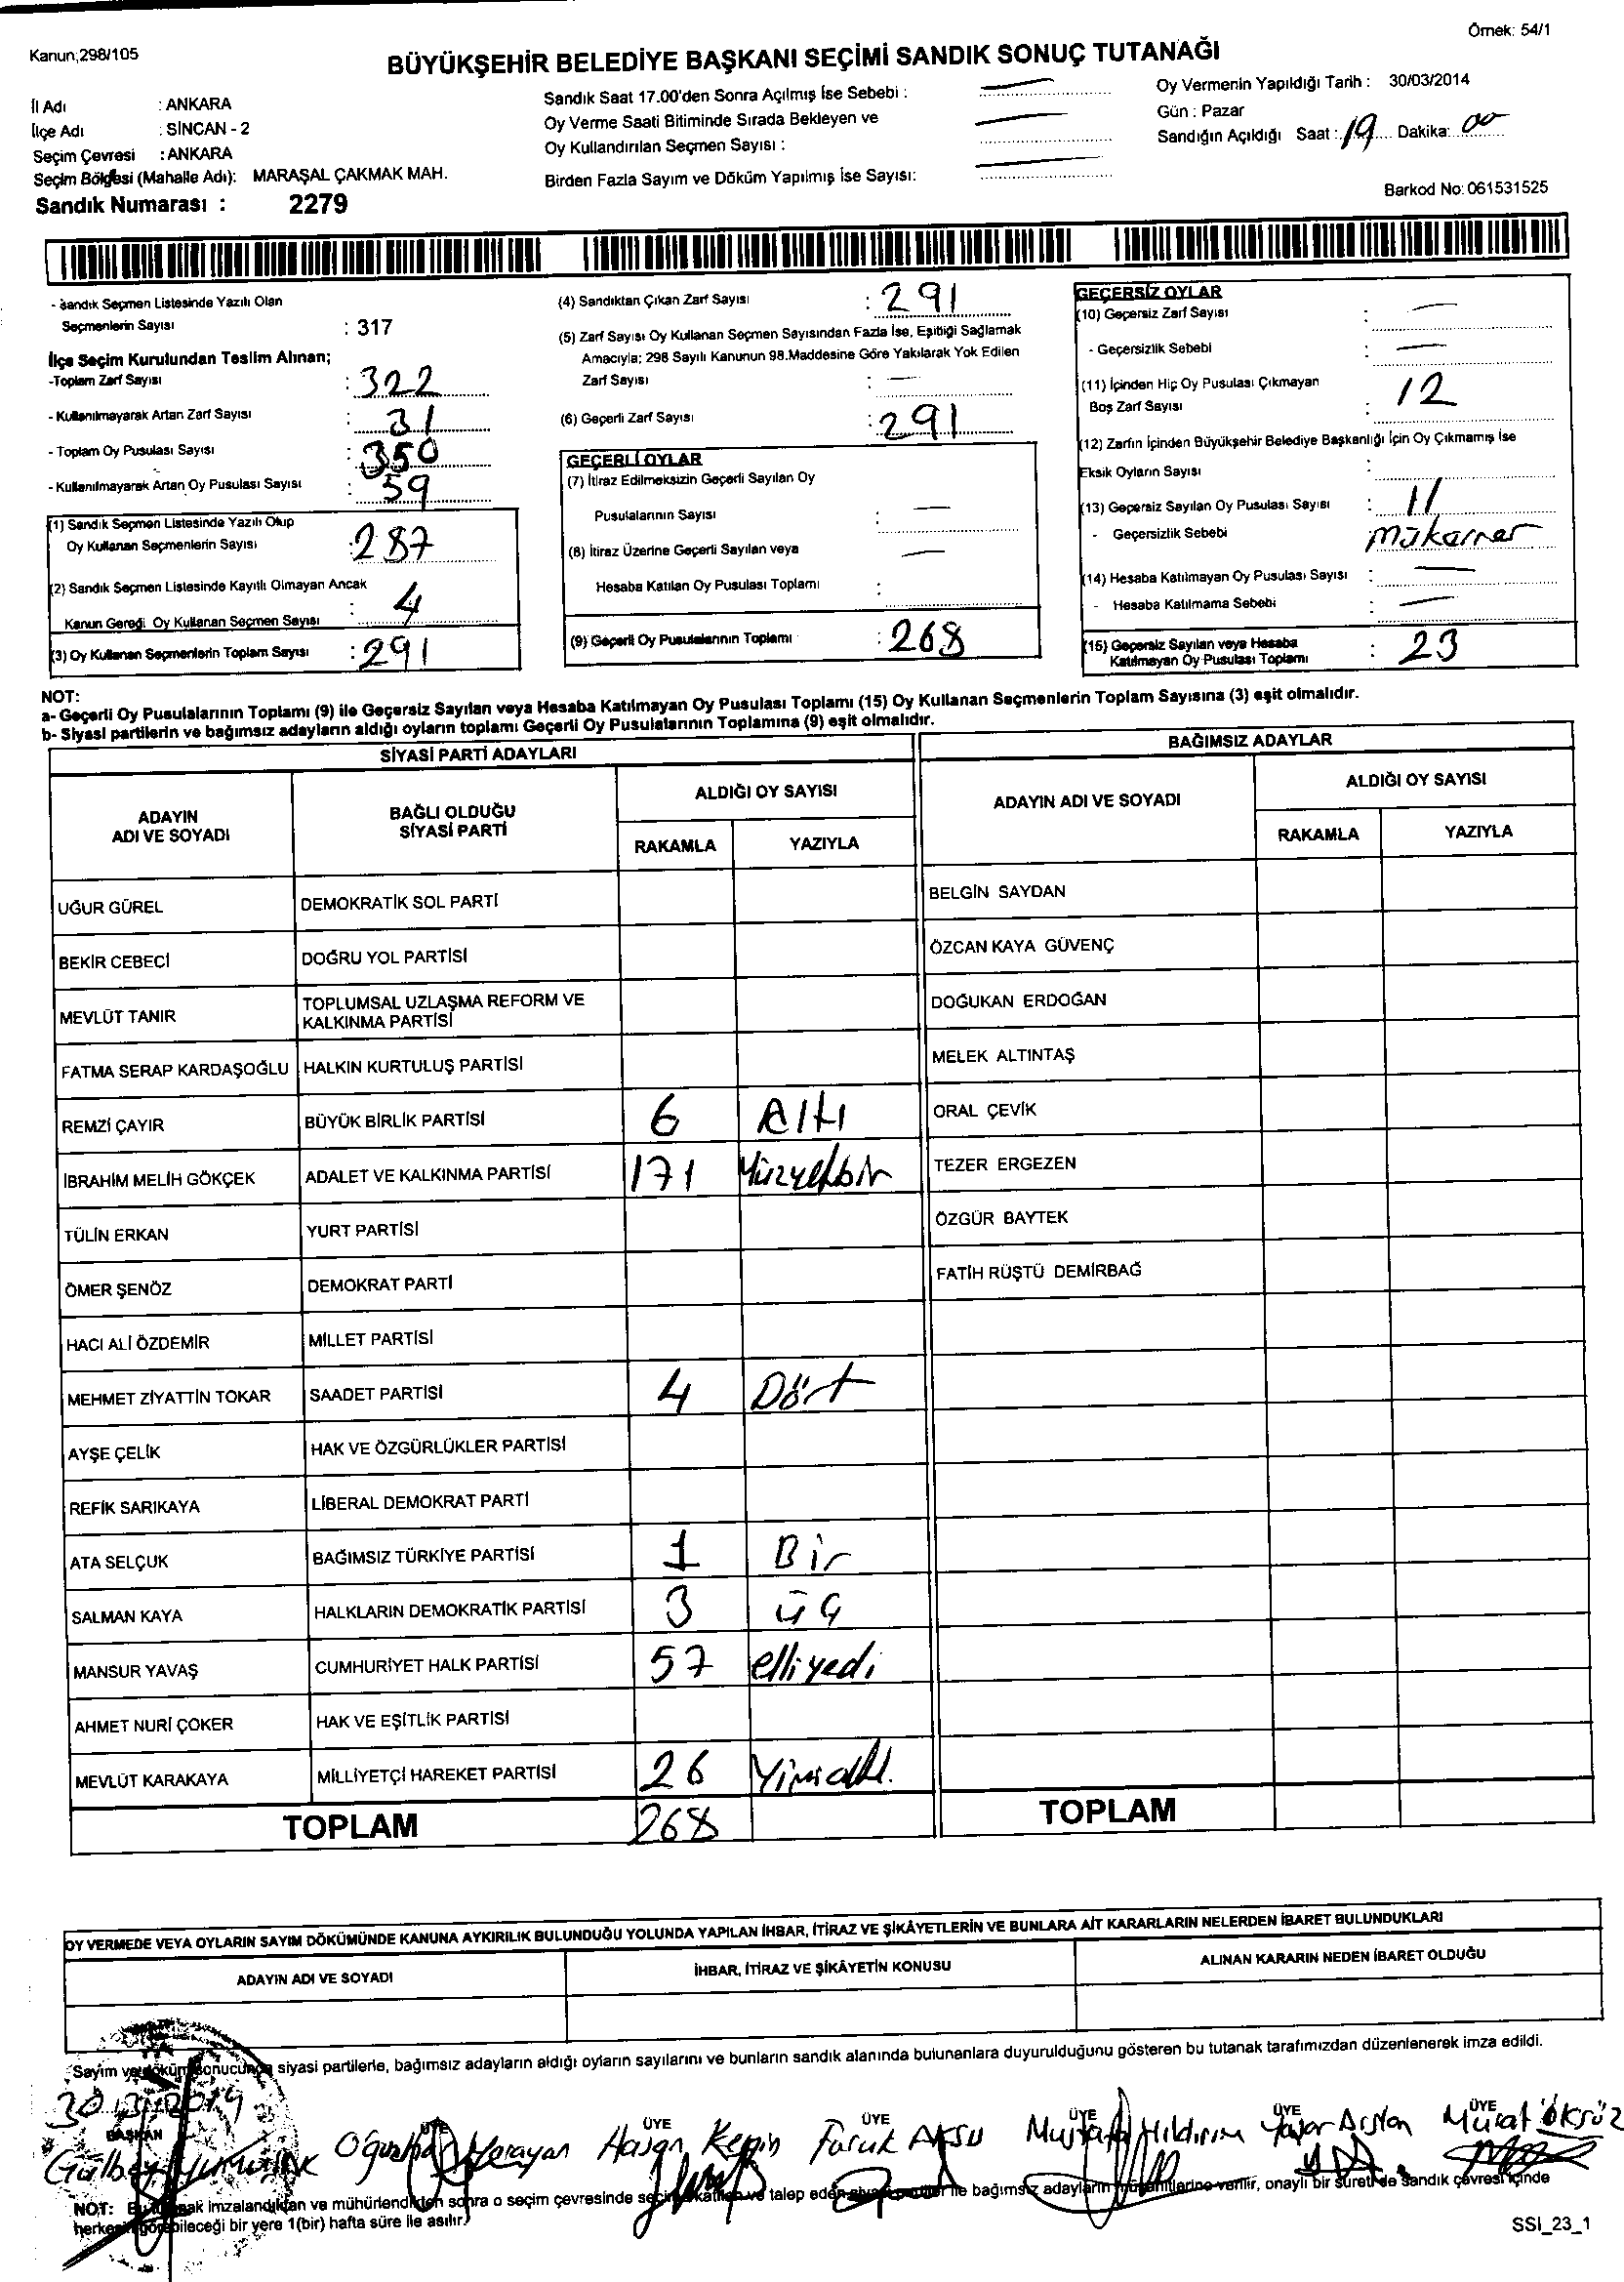 Örnek: 54/1
Kanun;298/105
BÜYÜKŞEHİR BELEDİYE BAŞKANI SEÇİMİ SANDIK SONUÇ TUTANAĞI
İl Adı : ANKARA
İlçe Adı : SİNCAN - 2
Seçim Çevresi : ANKARA
Seçim Bölgesi (Mahalle Adı): MARAŞAL ÇAKMAK MAH.
Sandık Numarası : 2279
Sandık Saat 17.00'den Sonra Açılmış İse Sebebi : —
Oy Verme Saati Bitiminde Sırada Bekleyen ve
Oy Kullandırılan Seçmen Sayısı : —
Birden Fazla Sayım ve Döküm Yapılmış İse Sayısı: —
Oy Vermenin Yapıldığı Tarih : 30/03/2014
Gün : Pazar
Sandığın Açıldığı Saat : 19 Dakika: 00
Barkod No: 061531525
- Sandık Seçmen Listesinde Yazılı Olan
Seçmenlerin Sayısı : 317
İlçe Seçim Kurulundan Teslim Alınan;
-Toplam Zarf Sayısı : 322
- Kullanılmayarak Artan Zarf Sayısı : 31
- Toplam Oy Pusulası Sayısı : 350
- Kullanılmayarak Artan Oy Pusulası Sayısı : 59
(1) Sandık Seçmen Listesinde Yazılı Olup
Oy Kullanan Seçmenlerin Sayısı : 287
(2) Sandık Seçmen Listesinde Kayıtlı Olmayan Ancak
Kanun Gereği Oy Kullanan Seçmen Sayısı : 4
(3) Oy Kullanan Seçmenlerin Toplam Sayısı : 291
(4) Sandıktan Çıkan Zarf Sayısı : 291
(5) Zarf Sayısı Oy Kullanan Seçmen Sayısından Fazla İse, Eşitliği Sağlamak
Amacıyla; 298 Sayılı Kanunun 98.Maddesine Göre Yakılarak Yok Edilen
Zarf Sayısı : —
(6) Geçerli Zarf Sayısı : 291
GEÇERLİ OYLAR
(7) İtiraz Edilmeksizin Geçerli Sayılan Oy
Pusulalarının Sayısı : —
(8) İtiraz Üzerine Geçerli Sayılan veya —
Hesaba Katılan Oy Pusulası Toplamı :
(9) Geçerli Oy Pusulalarının Toplamı : 268
GEÇERSİZ OYLAR
(10) Geçersiz Zarf Sayısı : —
- Geçersizlik Sebebi : —
(11) İçinden Hiç Oy Pusulası Çıkmayan
Boş Zarf Sayısı : 12
(12) Zarfın İçinden Büyükşehir Belediye Başkanlığı İçin Oy Çıkmamış İse
Eksik Oyların Sayısı :
(13) Geçersiz Sayılan Oy Pusulası Sayısı : 11
- Geçersizlik Sebebi : mükerrer
(14) Hesaba Katılmayan Oy Pusulası Sayısı : —
- Hesaba Katılmama Sebebi : —
(15) Geçersiz Sayılan veya Hesaba
Katılmayan Oy Pusulası Toplamı : 23
NOT:
a- Geçerli Oy Pusulalarının Toplamı (9) ile Geçersiz Sayılan veya Hesaba Katılmayan Oy Pusulası Toplamı (15) Oy Kullanan Seçmenlerin Toplam Sayısına (3) eşit olmalıdır.
b- Siyasi partilerin ve bağımsız adayların aldığı oyların toplamı Geçerli Oy Pusulalarının Toplamına (9) eşit olmalıdır.
SİYASİ PARTİ ADAYLARI
ADAYIN
ADI VE SOYADI
BAĞLI OLDUĞU
SİYASİ PARTİ
ALDIĞI OY SAYISI
RAKAMLA YAZIYLA
UĞUR GÜREL DEMOKRATİK SOL PARTİ
BEKİR CEBECİ DOĞRU YOL PARTİSİ
MEVLÜT TANIR TOPLUMSAL UZLAŞMA REFORM VE
KALKINMA PARTİSİ
FATMA SERAP KARDAŞOĞLU HALKIN KURTULUŞ PARTİSİ
REMZİ ÇAYIR BÜYÜK BİRLİK PARTİSİ 6 Altı
İBRAHİM MELİH GÖKÇEK ADALET VE KALKINMA PARTİSİ 171
TÜLİN ERKAN YURT PARTİSİ
ÖMER ŞENÖZ DEMOKRAT PARTİ
HACI ALİ ÖZDEMİR MİLLET PARTİSİ
MEHMET ZİYATTİN TOKAR SAADET PARTİSİ 4 Dört
AYŞE ÇELİK HAK VE ÖZGÜRLÜKLER PARTİSİ
REFİK SARIKAYA LİBERAL DEMOKRAT PARTİ
ATA SELÇUK BAĞIMSIZ TÜRKİYE PARTİSİ 1 Bir
SALMAN KAYA HALKLARIN DEMOKRATİK PARTİSİ 3 üç
MANSUR YAVAŞ CUMHURİYET HALK PARTİSİ 57 elliyedi
AHMET NURİ ÇOKER HAK VE EŞİTLİK PARTİSİ
MEVLÜT KARAKAYA MİLLİYETÇİ HAREKET PARTİSİ 26
TOPLAM 268
BAĞIMSIZ ADAYLAR
ADAYIN ADI VE SOYADI
ALDIĞI OY SAYISI
RAKAMLA YAZIYLA
BELGİN SAYDAN
ÖZCAN KAYA GÜVENÇ
DOĞUKAN ERDOĞAN
MELEK ALTINTAŞ
ORAL ÇEVİK
TEZER ERGEZEN
ÖZGÜR BAYTEK
FATİH RÜŞTÜ DEMİRBAĞ
TOPLAM
OY VERMEDE VEYA OYLARIN SAYIM DÖKÜMÜNDE KANUNA AYKIRILIK BULUNDUĞU YOLUNDA YAPILAN İHBAR, İTİRAZ VE ŞİKÂYETLERİN VE BUNLARA AİT KARARLARIN NELERDEN İBARET BULUNDUKLARI
ADAYIN ADI VE SOYADI İHBAR, İTİRAZ VE ŞİKÂYETİN KONUSU ALINAN KARARIN NEDEN İBARET OLDUĞU
Sayım ve döküm sonucunda siyasi partilerle, bağımsız adayların aldığı oyların sayılarını ve bunların sandık alanında bulunanlara duyurulduğunu gösteren bu tutanak tarafımızdan düzenlenerek imza edildi.
30.3.2014
BAŞKAN ÜYE ÜYE ÜYE ÜYE ÜYE ÜYE
Hasan Faruk AKSU Mustafa Yıldırım Yaşar Arslan Murat öksüz
NOT: Bu tutanak imzalandıktan ve mühürlendikten sonra o seçim çevresinde seçime katılan ve talep eden siyasi partiler ile bağımsız adayların müşahitlerine verilir, onaylı bir sureti de sandık çevresi içinde
herkesin görebileceği bir yere 1(bir) hafta süre ile asılır.
SSI_23_1